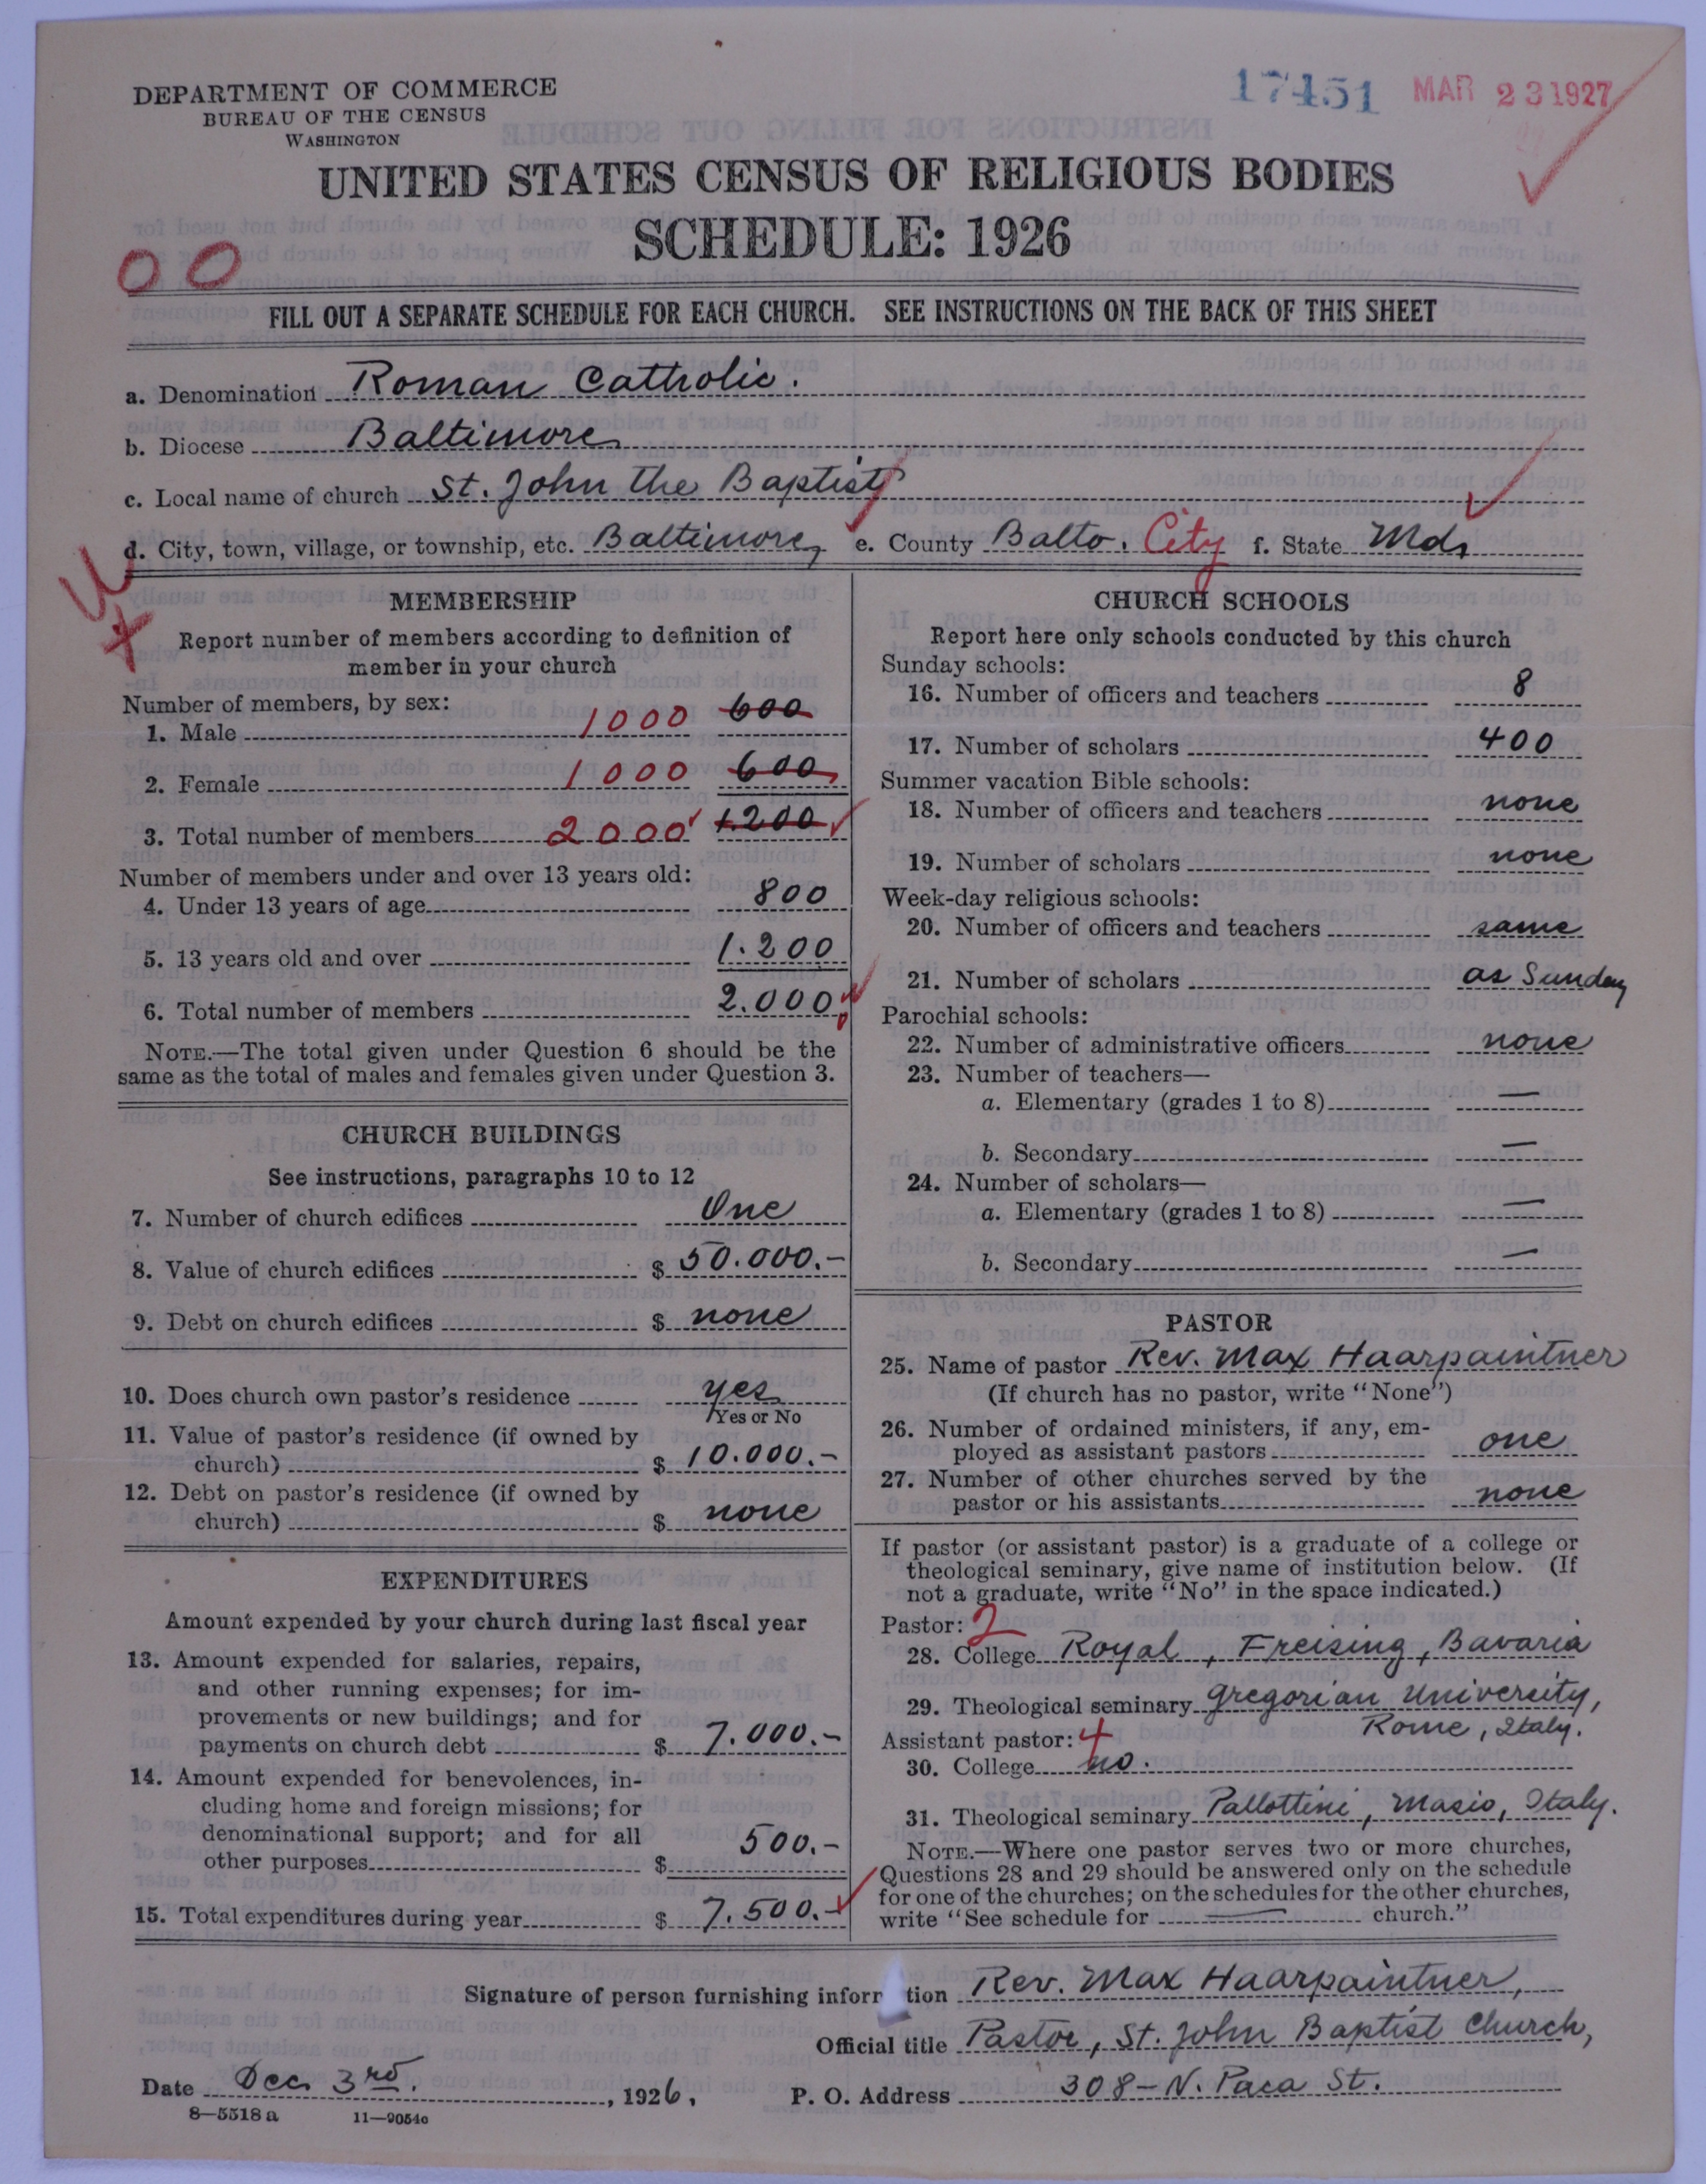 DEPARTMENT OF COMMERCE
BUREAU OF THE CENSUS
WASHINGTON
17451 MAR 23 1927
UNITED STATES CENSUS OF RELIGIOUS BODIES
SCHEDULE: 1926
00
FILL OUT A SEPARATE SCHEDULE FOR EACH CHURCH. SEE INSTRUCTIONS ON THE BACK OF THIS SHEET
a. Denomination Roman Catholic.
b. Diocese Baltimore
c. Local name of church St. John the Baptist
d. City, town, village, or township, etc. Baltimore, e. County Balto. City f. State Md.
MEMBERSHIP
Report number of members according to definition of
member in your church
Number of members, by sex:
1. Male 1000 600
2. Female 1000 600
3. Total number of members 2000 1.200
Number of members under and over 13 years old:
4. Under 13 years of age 800
5. 13 years old and over 1.200
6. Total number of members 2.000
NOTE.—The total given under Question 6 should be the
same as the total of males and females given under Question 3.
CHURCH BUILDINGS
See instructions, paragraphs 10 to 12
7. Number of church edifices One
8. Value of church edifices $ 50.000.-
9. Debt on church edifices $ none
10. Does church own pastor's residence yes
Yes or No
11. Value of pastor's residence (if owned by
church) $ 10.000.-
12. Debt on pastor's residence (if owned by
church) $ none
EXPENDITURES
Amount expended by your church during last fiscal year
13. Amount expended for salaries, repairs,
and other running expenses; for im-
provements or new buildings; and for
payments on church debt $ 7.000.-
14. Amount expended for benevolences, in-
cluding home and foreign missions; for
denominational support; and for all
other purposes $ 500.-
15. Total expenditures during year $ 7.500.-
CHURCH SCHOOLS
Report here only schools conducted by this church
Sunday schools:
16. Number of officers and teachers 8
17. Number of scholars 400
Summer vacation Bible schools:
18. Number of officers and teachers none
19. Number of scholars none
Week-day religious schools:
20. Number of officers and teachers same
21. Number of scholars as Sunday
Parochial schools:
22. Number of administrative officers none
23. Number of teachers—
a. Elementary (grades 1 to 8) —
b. Secondary —
24. Number of scholars—
a. Elementary (grades 1 to 8) —
b. Secondary —
PASTOR
25. Name of pastor Rev. Max Haarpaintner
(If church has no pastor, write "None")
26. Number of ordained ministers, if any, em-
ployed as assistant pastors one
27. Number of other churches served by the
pastor or his assistants none
If pastor (or assistant pastor) is a graduate of a college or
theological seminary, give name of institution below. (If
not a graduate, write "No" in the space indicated.)
Pastor: 2
28. College Royal, Freising, Bavaria
29. Theological seminary Gregorian University,
Rome, Italy.
Assistant pastor: 4
30. College no.
31. Theological seminary Pallottini, Masio, Italy.
NOTE.—Where one pastor serves two or more churches,
Questions 28 and 29 should be answered only on the schedule
for one of the churches; on the schedules for the other churches,
write "See schedule for — church."
Signature of person furnishing infor tion Rev. Max Haarpaintner,
Official title Pastor, St. John Baptist Church,
Date Dec. 3rd. , 1926, P. O. Address 308-N. Paca St.
8—5518 a 11—9054a